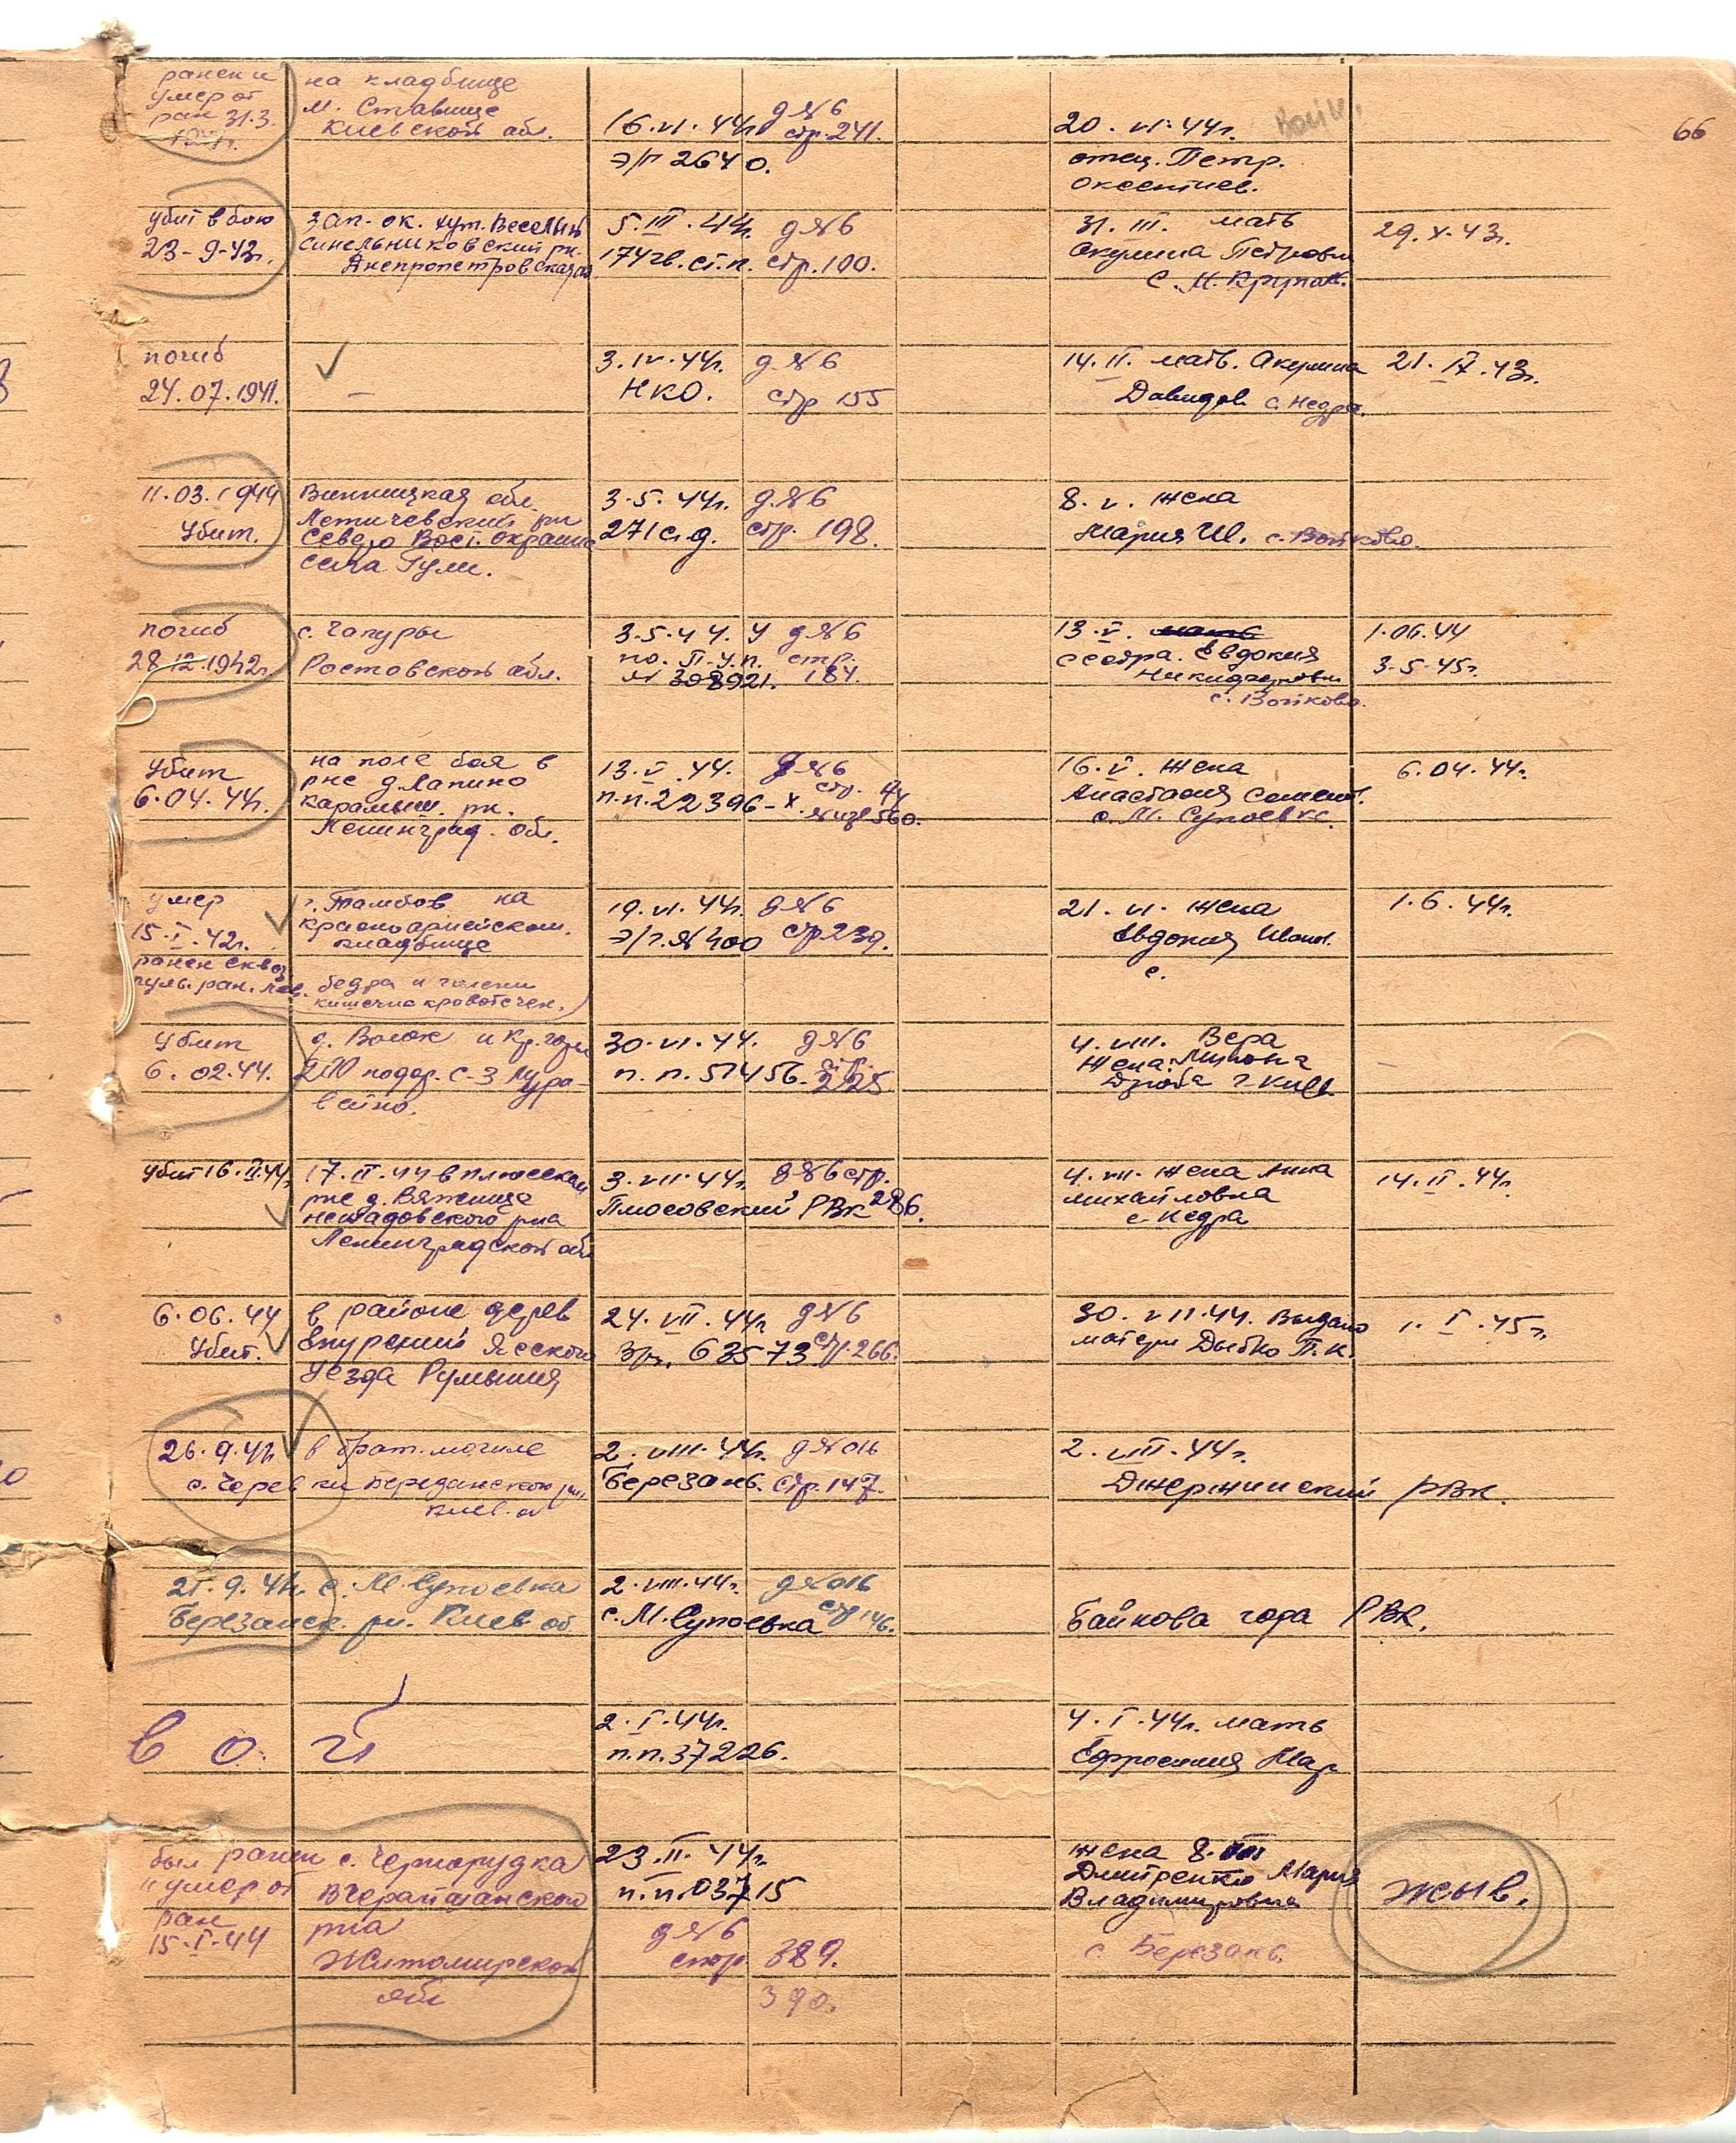 66
ранен и
умер от
ран 31.3.
на кладбище
м. Ставище
Киевской обл.
16.VI.44г. д №6
стр. 241.
э/г 2640.
20.VI.44г.
отец. Петр.
убит в бою
23-9-43г.
зап. ок. хут. Веселый
Синельниковский рн.
Днепропетровская
5.III.44г. д №6
174 гв.ст.п. стр. 100.
31.III. мать
Акулина Петровн
с. М. Крупол.
29.X.43г.
погиб
24.07.1941.
—
3.IV.44г. д №6
НКО. стр 155
14.II. мать. Акулина
Давидов. с. Недра.
21.IX.43г.
11.03.1944
Убит.
Винницкая обл.
Летичевский рн
Северо Вост. окраина
села Гули.
3.5.44г. д №6
271 с.д. стр. 198.
8.V. жена
Мария Ш. с. Войково.
погиб
28.12.1942г.
с. Чапуры
Ростовской обл.
3.5.44. У д №6
по. П.У.п. стр.
№ 308921. 184.
13.V. мать
сестра. Евдокия
с. Войково.
1.06.44
3.5.45г.
Убит
6.04.44г.
на поле боя в
рне д Лапино
карамыш. рн.
Ленинград. обл.
13.V.44. д №6
стр.
п.п. 22396-х
560.
16.V. жена
Анастасия Семент.
с. М. Супоевка.
6.04.44г.
умер
15.I.42г.
ранен сквоз
пул. ран. лев. бедра и голени
кишечно кровотечен.
г. Тамбов на
красноармейском.
кладбище
19.VI.44г. д №6
э/г. №400 стр 239.
21.VI. жена
Евдокия Иван.
с.
1.6.44г.
Убит
6.02.44.
д. Волок и Кр. горы
200 подар. с-з Мура-
вейно.
30.VI.44. д №6
стр.
п.п. 57456. 225
4.VIII. Вера
жена.
Дзюба г. Киев.
убит 16.II.44г.
17.II.44 в плюсском
рне д. Вяжище
рна
Ленинградской обл
3.VII.44г. д №6 стр.
Плюсовский РВК 286.
4.VII. жена Анна
михайловна
с. Недра
14.II.44г.
6.06.44
Убит.
в районе дерев
Епурений Ясского
уезда Румыния
24.VII.44г. д №6
63573 стр. 266.
30.VII.44. Выдано
матери Дыбко П.К.
1.I.45г.
26.9.41г. в брат. могиле
с. Черевки Березанского рн,
Киев. об
2.VIII.44г. д №016
Березань. стр. 147.
2.VIII.44г.
Джержинский РВК.
25.9.41г. с. М. Супоевка
Березанск. рн. Киев об
2.VIII.44г. д №016
с. М. Супоевка стр 146.
Байкова гора РВК.
2.I.44г.
п.п. 37226.
4.I.44г. мать
Ефросиния Мар
был ранен
и умер от
ран
15.I.44
с. Чернорудка
Вчерайшанской
рна
Житомирской
обл
23.II.44г.
п.п. 03715
д №6
стр 389.
390.
жена 8.
Дмитренко Мария
Владимировна
с. Березань.
жыв.